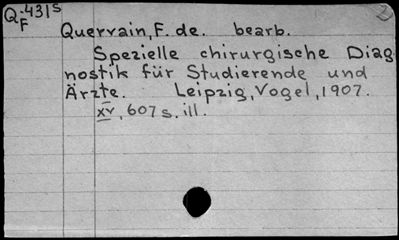 Q-431s
F
Quervain, F. de. bearb.
Spezielle chirurgische Diag
nostik für Studierende und
Ärzte. Leipzig, Vogel, 1907.
xv, 607 s. ill.